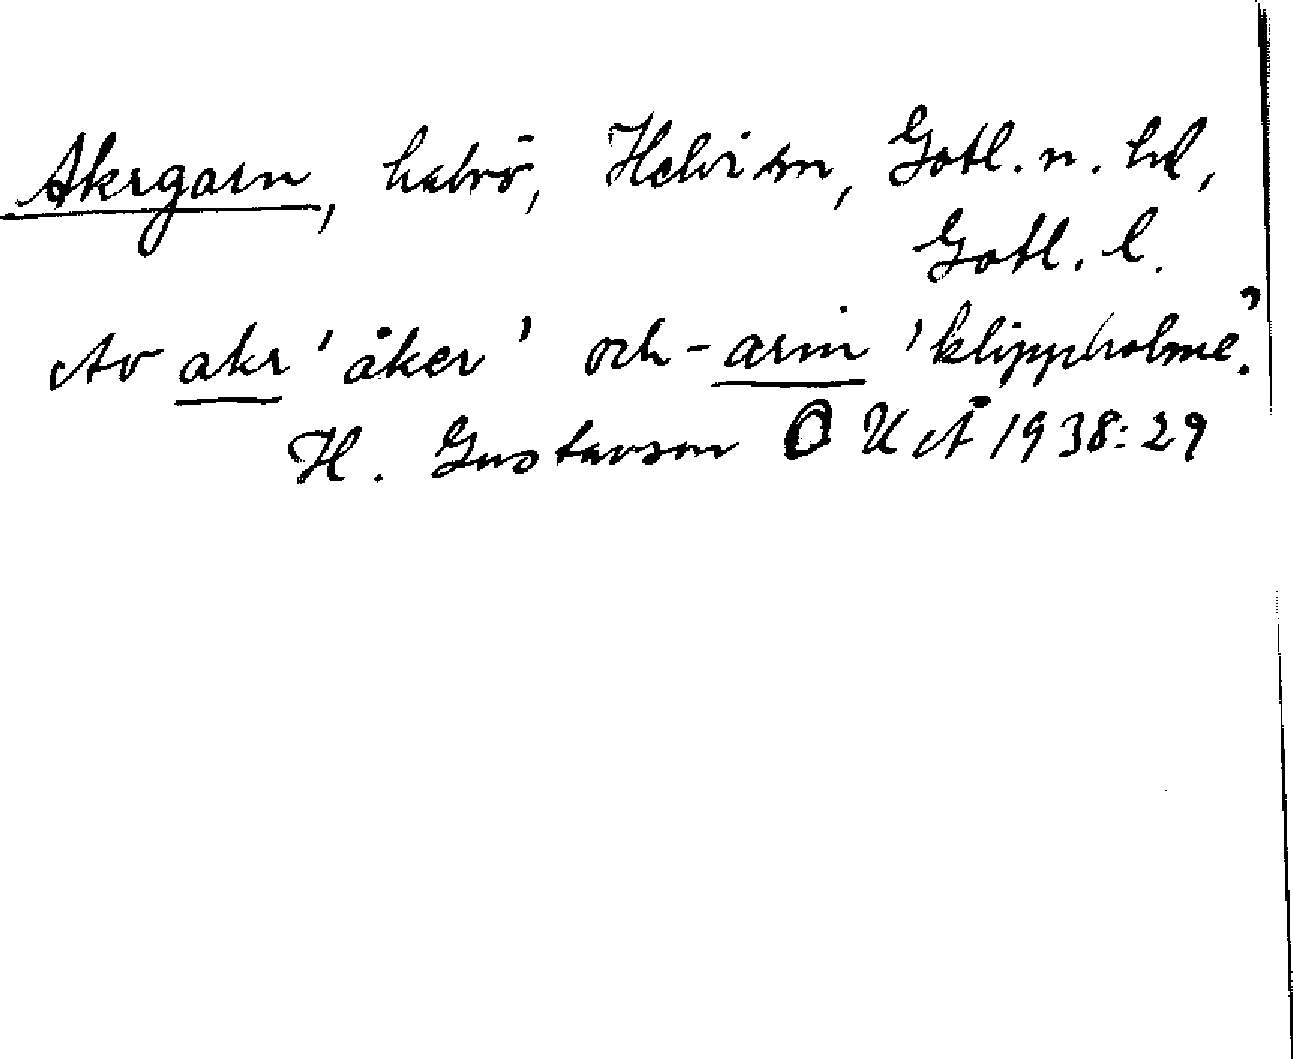 Akrgarn, halvö, Hellvi sn, Gotl. n. hd,
Gotl. l.
Av akr 'åker' och -arin 'klippholme'.
H. Gustavson OUÅ 1938:29